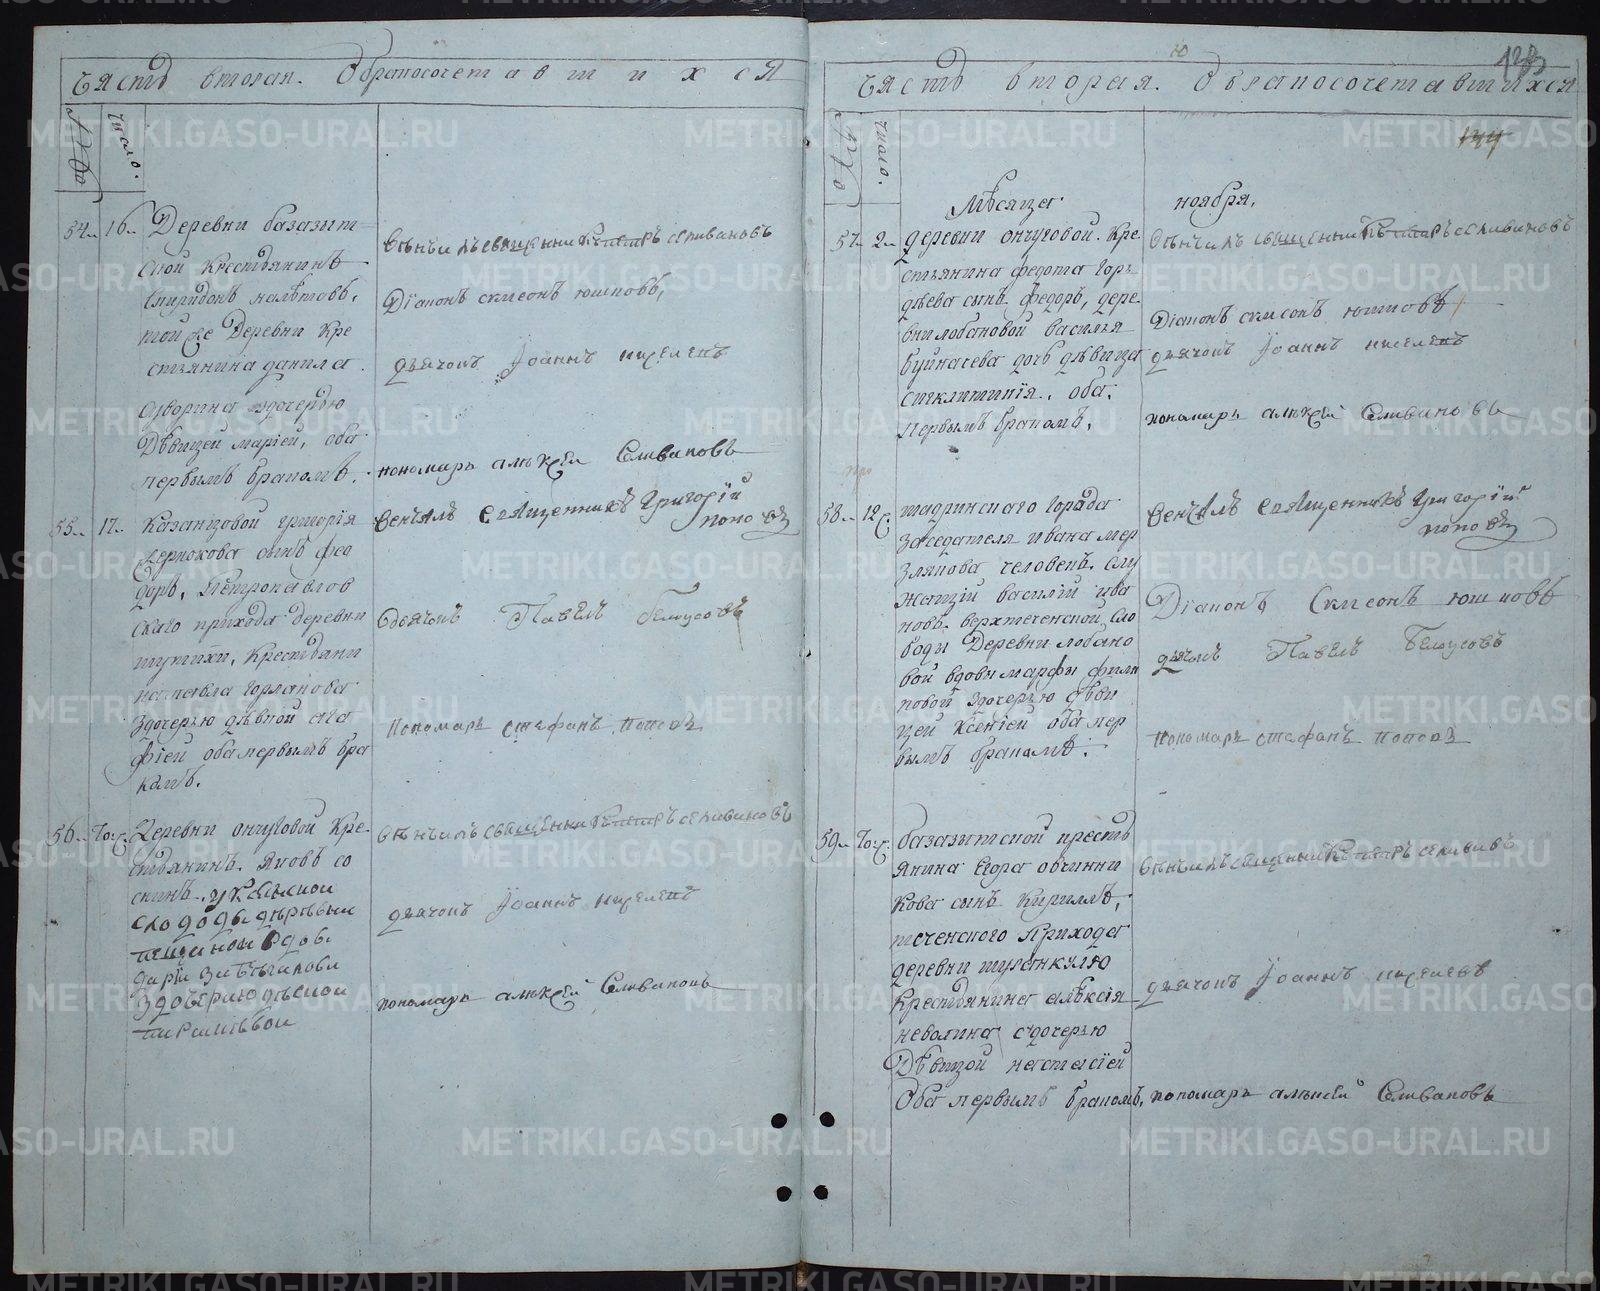 Часть вторая. О бракосочетавшихся
№
число.
54. 16. Деревни базазыт-
ской крестьянинъ
Спиридонъ
той же Деревни кре
стьянина данила
здочерью
Дѣвицей маріей, оба
первымъ бракомъ.
Вѣнчилъ священникъ Петръ селивановъ
Діаконъ симеонъ юшковъ,
дьячокъ Іоаннъ киселевъ
пономарь алѣксей Селивановъ
55. 17. Казанцовой григорія
сынъ фед
оръ, Петропавлов
скаго прихода деревни
шутихи, крестьяни
на павла горланова
здочерью дѣвкой ага
фіей оба первымъ бра
комъ.
Венчалъ священникъ Григорій
поповъ
дьячокъ Павелъ Белоусовъ
Пономарь стефанъ поповъ
56. Деревни ончуговой Кре-
стьянинъ. Яковъ со
слободы деревни
вдовы
дарьи
здочерью
Вѣнчилъ священникъ Петръ селивановъ
дьячокъ Іоаннъ киселевъ
пономарь алѣксей Селивановъ
Часть вторая. О бракосочетавшихся
123
144
№
число.
Мѣсяца ноября,
57. 2. деревни ончуговой. Кре
стьянина федота Горь
дѣева сынъ федоръ, дере-
вни лобановой василья
буйнасева дочь дѣвица
оба,
первымъ бракомъ,
Вѣнчилъ священникъ Петръ селивановъ
Діаконъ симеонъ юшковъ
дьячокъ Іоаннъ киселевъ
пономарь алѣксей Селивановъ
58. 12. шадринскаго города
заседателя ивана мер
злякова человекъ. слу
жащій василій ива
новъ. верхтеченской сло
боды Деревни лобано
вой вдовы марфы филип
повой здочерью дѣви
цей Ксеніей оба пер
вымъ бракомъ.
Венчалъ священникъ Григорій
поповъ
Діаконъ Симеонъ юшковъ
дьячокъ Павелъ Белоусовъ
Пономарь стефанъ поповъ
59. базазытской кресть
янина Егора овчинни
кова сынъ Кириллъ,
теченского Прихода
деревни
Крестьянина алѣксія
неволина сдочерью
Дѣвицой настасіей
Оба первымъ бракомъ,
Вѣнчилъ священникъ Петръ
дьячокъ Іоаннъ киселевъ
пономарь алѣксей Селивановъ
METRIKI.GASO-URAL.RU